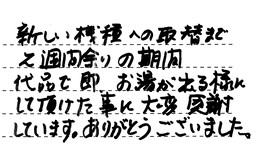 新しい機種への取替まで
七週間余りの期間
代品で即、お湯が出る様に
して頂けた事に大変感謝
しています。ありがとうございました。